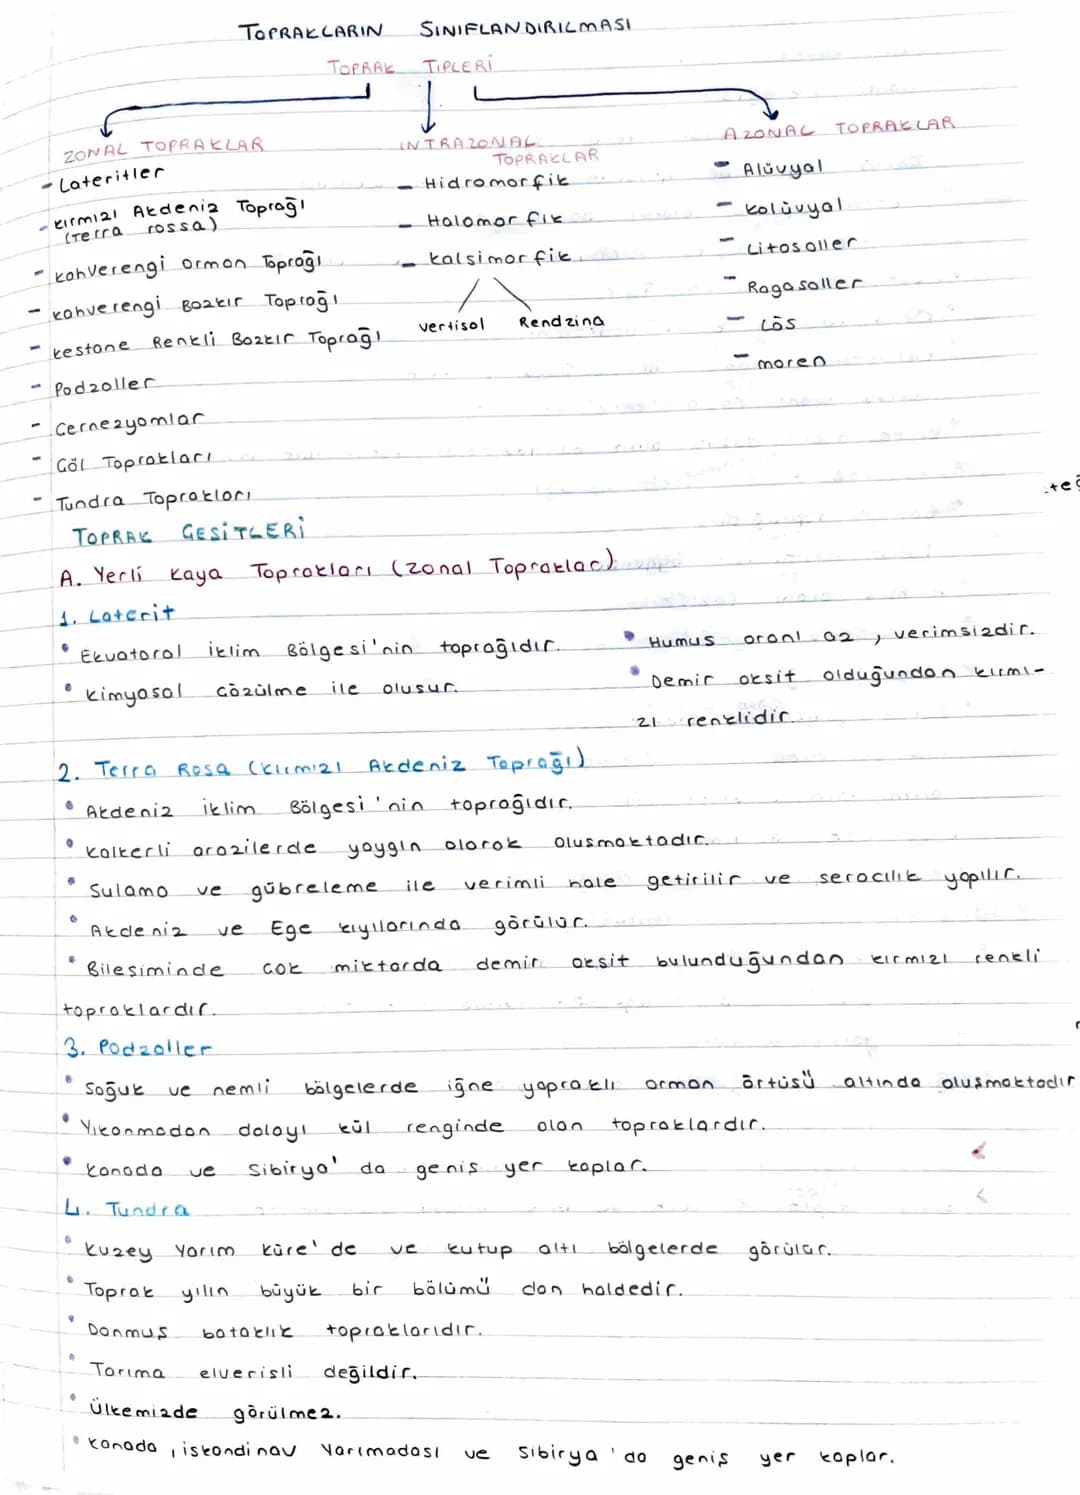 TOPRAKLARIN SINIFLANDIRILMASI
TOPRAK TİPLERİ
ZONAL TOPRAKLAR
- Lateritler
- Kırmızı Akdeniz Toprağı
(Terra rossa)
- Kahverengi Orman Toprağı
- Kahverengi Bozkır Toprağı
- Kestane Renkli Bozkır Toprağı
- Podzoller
- Cernezyomlar
- Çöl Toprakları
- Tundra Toprakları
INTRAZONAL
TOPRAKLAR
- Hidromorfik
- Halomorfik
- Kalsimorfik
Vertisol Rendzina
AZONAL TOPRAKLAR
- Alüvyal
- Kolüvyal
- Litosoller
- Ragasoller
- Lös
- moren
TOPRAK ÇEŞİTLERİ
A. Yerli Kaya Toprakları (Zonal Topraklar)
1. Laterit
• Ekvatoral iklim Bölgesi'nin toprağıdır.
• Kimyasal çözülme ile oluşur.
• Humus oranı az, verimsizdir.
• Demir oksit olduğundan kırmı-
zı renklidir.
2. Terra Rosa (Kırmızı Akdeniz Toprağı)
• Akdeniz iklim Bölgesi'nin toprağıdır.
• Kalkerli arazilerde yaygın olarak oluşmaktadır.
• Sulama ve gübreleme ile verimli hale getirilir ve seracılık yapılır.
• Akdeniz ve Ege kıyılarında görülür.
• Bileşiminde çok miktarda demir oksit bulunduğundan kırmızı renkli
topraklardır.
3. Podzoller
• Soğuk ve nemli bölgelerde iğne yapraklı orman örtüsü altında oluşmaktadır
• Yıkanmadan dolayı kül renginde olan topraklardır.
• Kanada ve Sibirya'da geniş yer kaplar.
4. Tundra
• Kuzey Yarım Küre'de ve kutup altı bölgelerde görülür.
• Toprak yılın büyük bir bölümü don haldedir.
• Donmuş bataklık topraklarıdır.
• Tarıma elverişli değildir.
• Ülkemizde görülmez.
• Kanada, İskandinav Yarımadası ve Sibirya'da geniş yer kaplar.